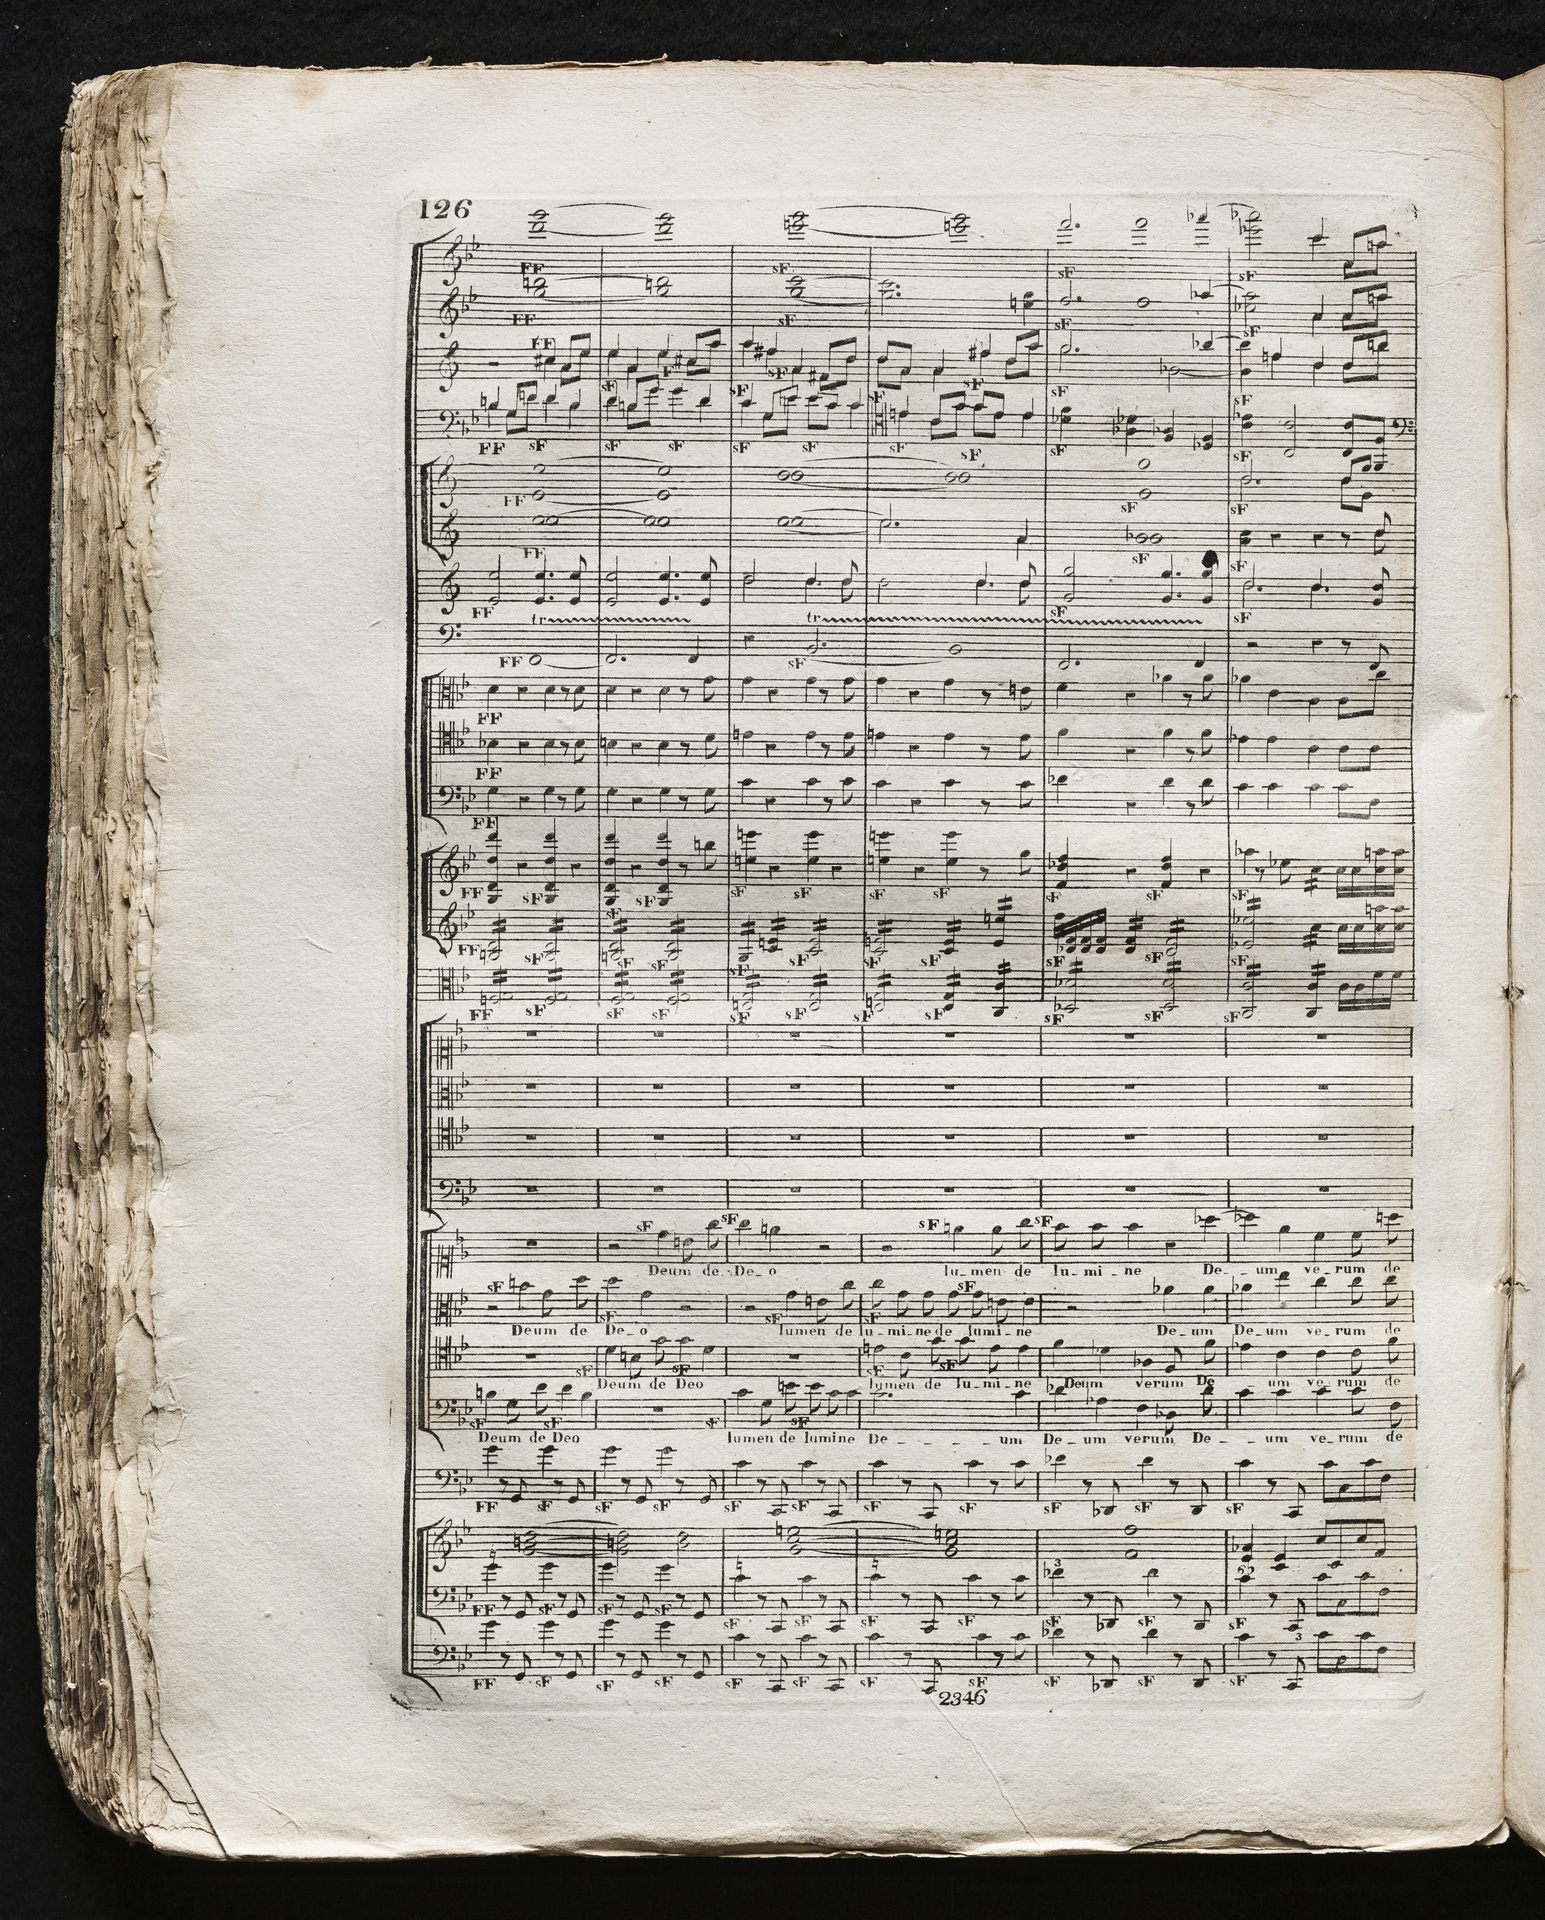 126
FF sF sF sF
FF sF sF sF
FF sF F sF sF sF sF
FF sF sF sF sF sF sF sF sF sF
FF sF
FF sF sF
FF sF sF
tr tr
FF sF
FF
FF
FF
FF sF sF sF sF sF sF sF sF sF
FF sF sF sF sF sF sF sF sF sF sF
FF sF sF sF sF sF sF sF sF sF sF
sF sF sF sF
Deum de De_o lu_men de lu_mi_ne De_um ve_rum de
sF sF sF sF sF
Deum de De_o lumen de lu_mi_ne de lumi_ne De_um De_um ve_rum de
sF sF sF sF
Deum de Deo lumen de lu_mi_ne Deum verum De_um ve_rum de
sF sF sF sF
Deum de Deo lumen de lumine De_um De_um verum De_um ve_rum de
FF sF sF sF sF sF sF sF sF sF sF
3
FF sF sF sF sF sF sF sF sF sF sF
3
FF sF sF sF sF sF sF sF sF sF sF
2346